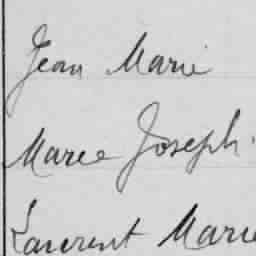 Jean Marie
Maree Joseph.
Laurent Marie